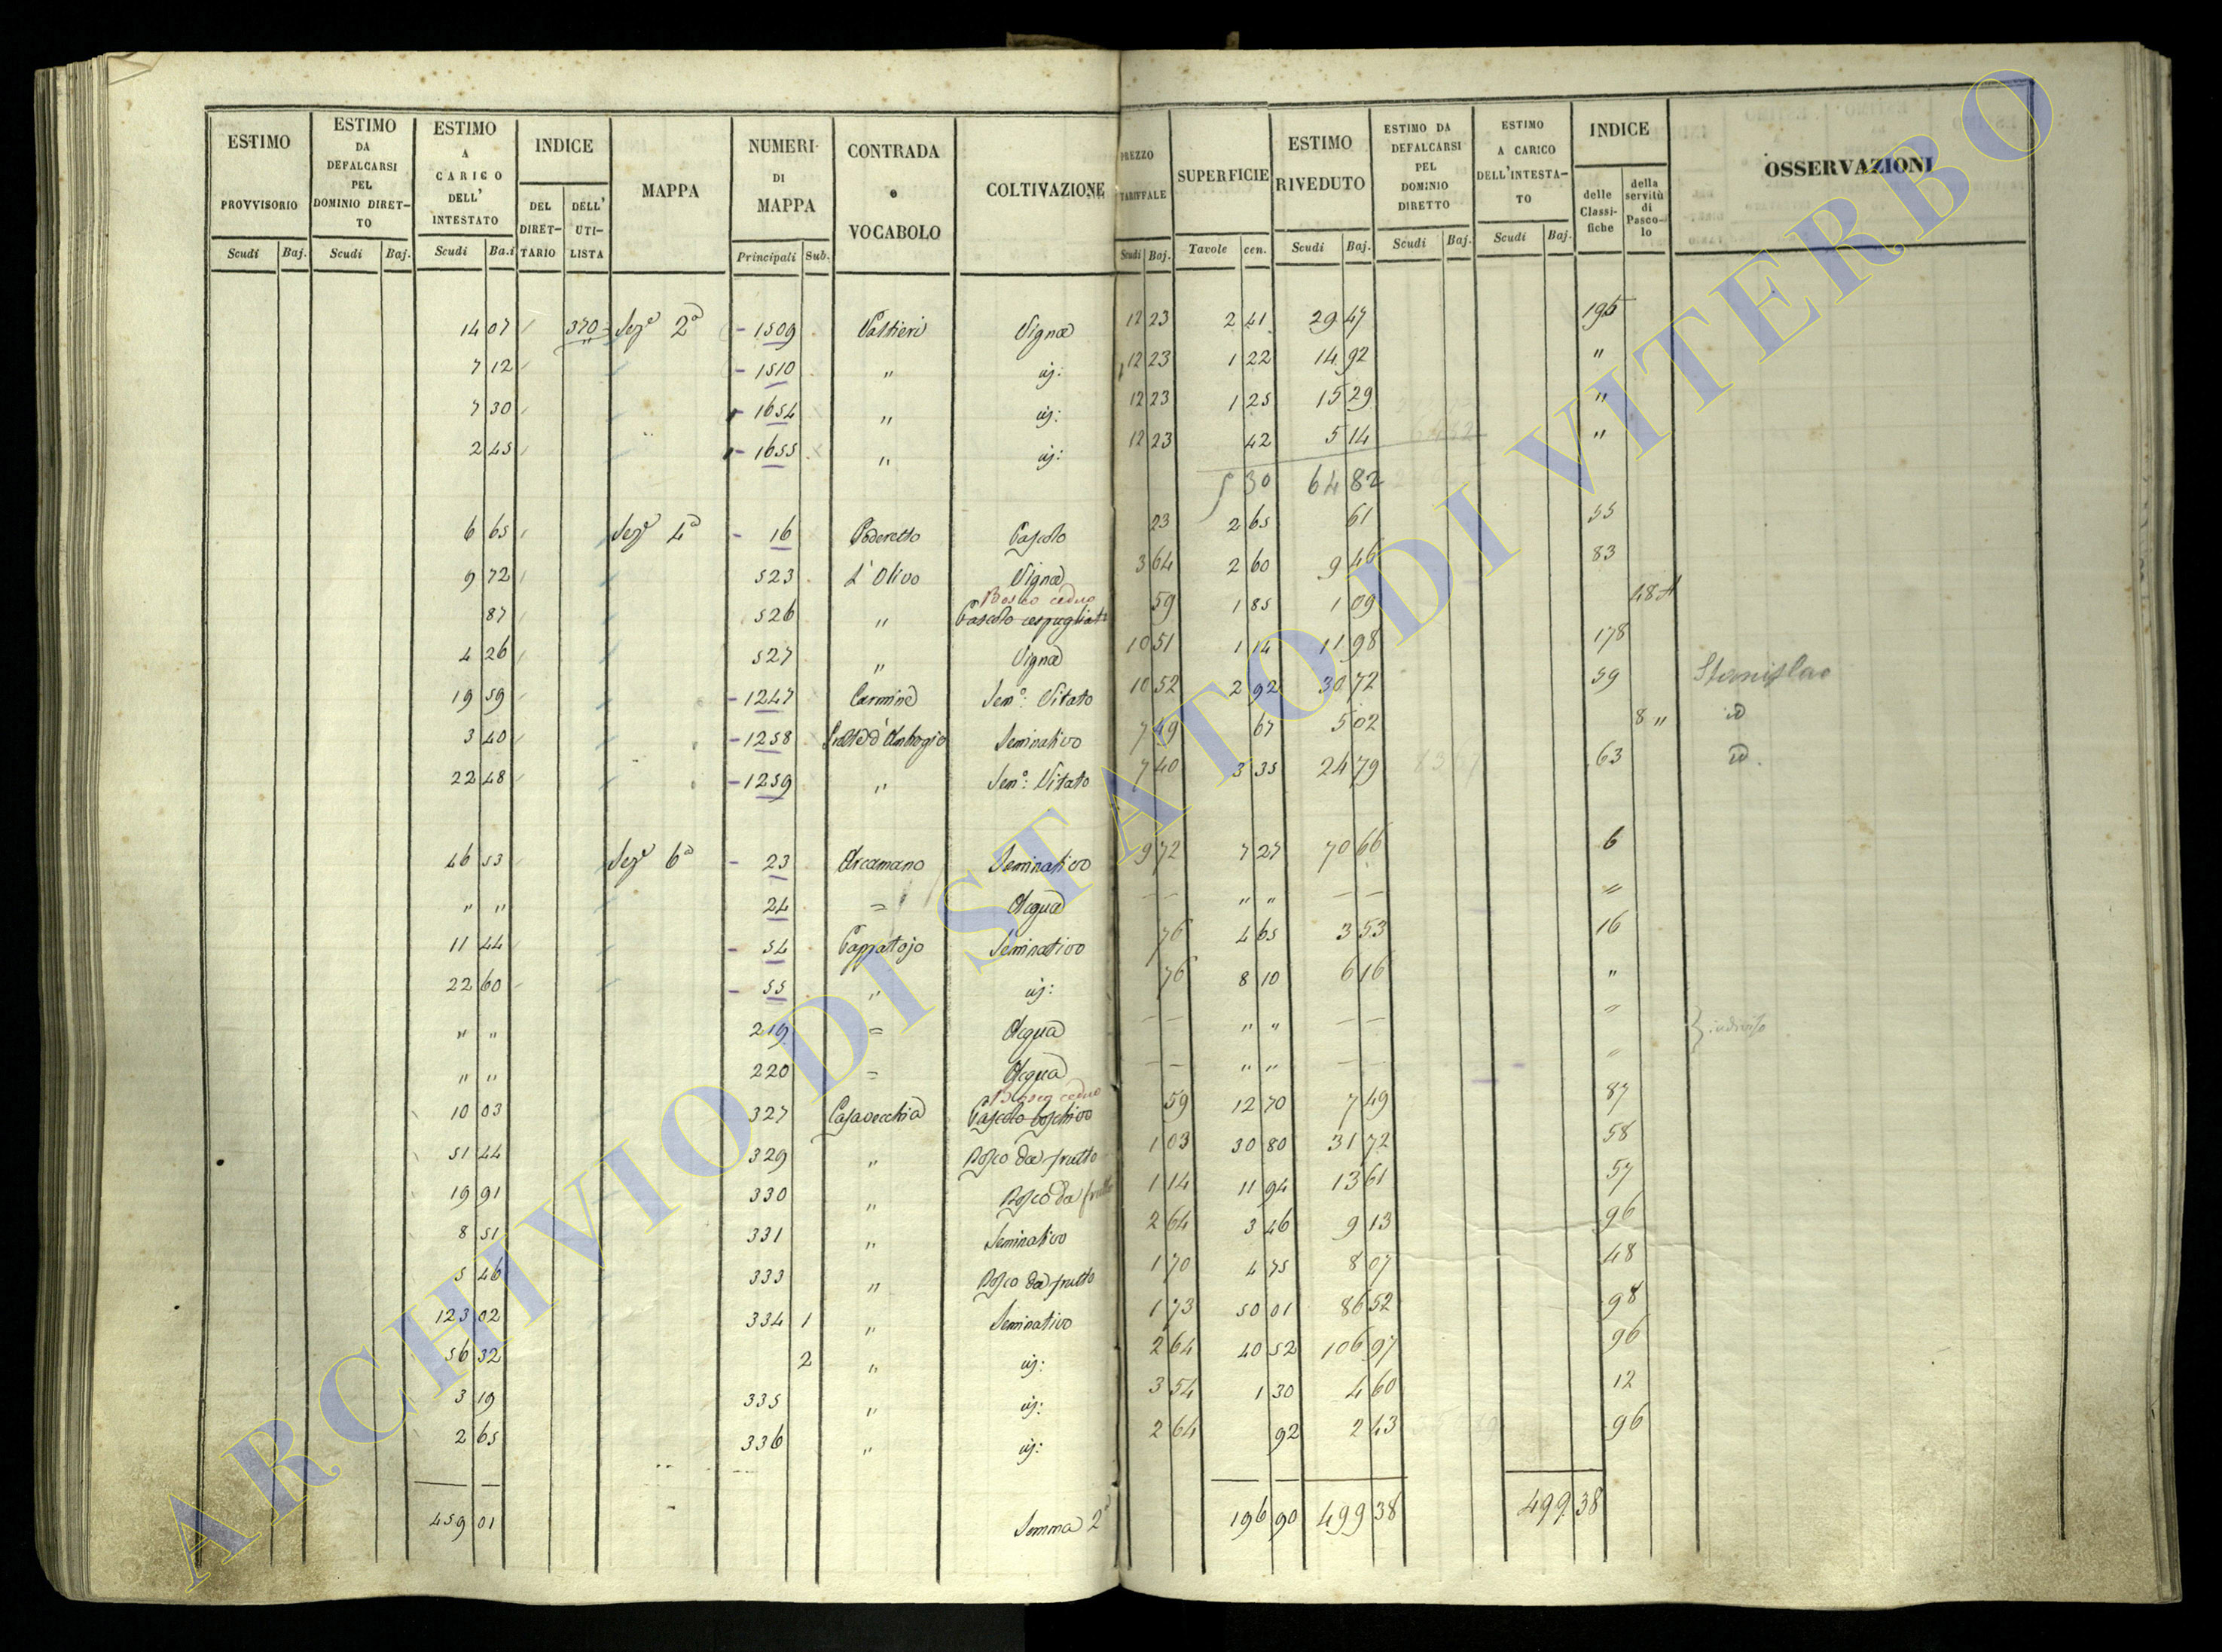 ESTIMO PROVVISORIO | ESTIMO DA DEFALCARSI PEL DOMINIO DIRET-TO | ESTIMO A CARICO DELL' INTESTATO | INDICE | MAPPA | NUMERI DI MAPPA | CONTRADA e VOCABOLO | COLTIVAZIONE | PREZZO TARIFFALE | SUPERFICIE | ESTIMO RIVEDUTO | ESTIMO DA DEFALCARSI PEL DOMINIO DIRETTO | ESTIMO A CARICO DELL'INTESTA-TO | INDICE | OSSERVAZIONI
DEL DIRET-TARIO | DELL' UTI-LISTA | delle Classi-fiche | della servitù di Pasco-lo
Scudi | Baj. | Scudi | Baj. | Scudi | Ba.i | Principali | Sub. | Scudi | Baj. | Tavole | cen. | Scudi | Baj. | Scudi | Baj. | Scudi | Baj.
14 07 | 370 | Sez.e 2a | 1509 | Valtieri | Vigna | 12 23 | 2 41 | 29 47 | 195
7 12 | 1510 | " | id: | 12 23 | 1 22 | 14 92 | "
7 30 | 1654 | " | id: | 12 23 | 1 25 | 15 29 | "
2 45 | 1655 | " | id: | 12 23 | 42 | 5 14 | "
5 30 | 64 82
6 65 | Sez.e 4a | 16 | Poderetto | Pascolo | 23 | 2 65 | 61 | 55
9 72 | 523 | L'Olivo | Vigna | 3 64 | 2 60 | 9 46 | 83
Bosco ceduo
87 | 526 | " | Pascolo cespugliato | 59 | 1 85 | 1 09 | 48 A
4 26 | 527 | " | Vigna | 10 51 | 1 14 | 11 98 | 178
19 59 | 1247 | Carmine | Sem.o: Vitato | 10 52 | 2 92 | 30 72 | 59 | Stanislao
3 40 | 1258 | d'Ambrogio | Seminativo | 7 49 | 67 | 5 02 | 8 " | id
22 48 | 1259 | " | Sem.o: Vitato | 7 40 | 3 35 | 24 79 | 63 | id.
46 53 | Sez.e 6a | 23 | Arcamano | Seminativo | 9 72 | 7 27 | 70 66 | 6
" " | 24 | = | Acqua | — — | " " | — — | "
11 44 | 54 | Pappatojo | Seminativo | 76 | 4 65 | 3 53 | 16
22 60 | 55 | " | id: | 76 | 8 10 | 6 16 | "
" " | 219 | = | Acqua | — — | " " | — — | " | indiviso
" " | 220 | = | Acqua | — — | " " | — — | "
Bosco ceduo
10 03 | 327 | Casavecchia | Pascolo boschivo | 59 | 12 70 | 7 49 | 87
51 44 | 329 | " | Bosco da frutto | 1 03 | 30 80 | 31 72 | 58
19 91 | 330 | " | Bosco da frutto | 1 14 | 11 94 | 13 61 | 57
8 51 | 331 | " | Seminativo | 2 64 | 3 46 | 9 13 | 96
5 46 | 333 | " | Bosco da frutto | 1 70 | 4 75 | 8 07 | 48
123 02 | 334 | 1 | " | Seminativo | 1 73 | 50 01 | 86 52 | 98
56 32 | 2 | " | id: | 2 64 | 40 52 | 106 97 | 96
3 19 | 335 | " | id: | 3 54 | 1 30 | 4 60 | 12
2 65 | 336 | " | id: | 2 64 | 92 | 2 43 | 96
459 01 | Somma 2a | 196 90 | 499 38 | 499 38
ARCHIVIO DI STATO DI VITERBO